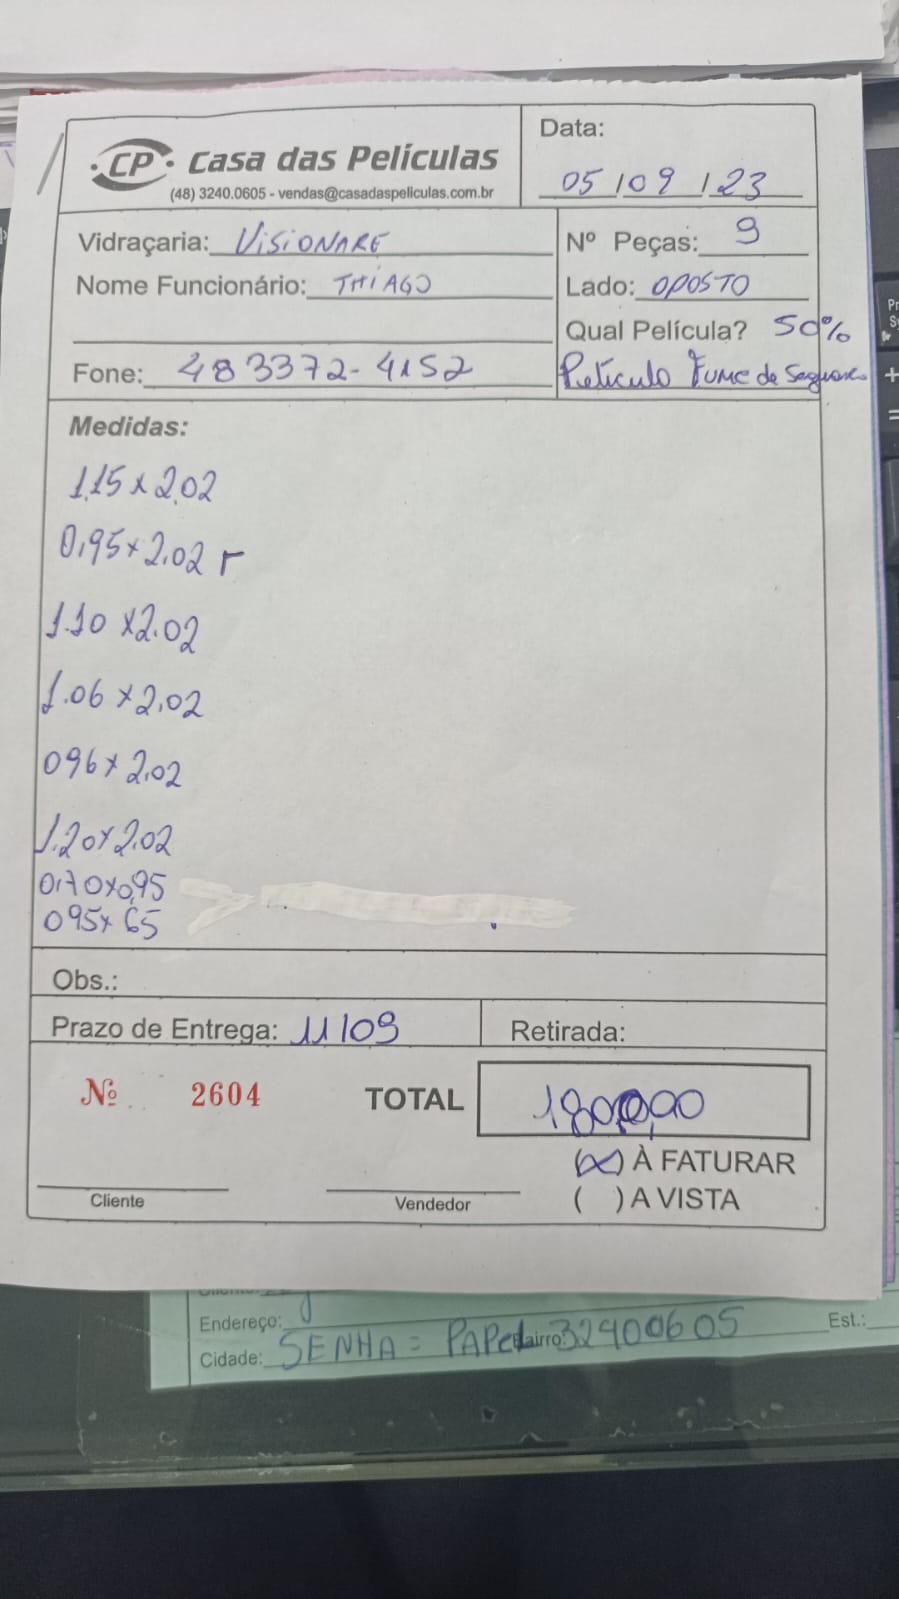 CP Casa das Películas
(48) 3240.0605 - vendas@casadaspeliculas.com.br
Data:
05/09/23
Vidraçaria: VISIONARE
Nº Peças: 9
Nome Funcionário: THIAGO
Lado: OPOSTO
Qual Película? 50%
Fone: 483372-4152
Película Fume de
Medidas:
1.15 x 2.02
0,95 x 2.02 r
1.10 x 2.02
1.06 x 2.02
096 x 2.02
1.20 x 2.02
0,70 x 0,95
095 x 65
Obs.:
Prazo de Entrega: 11/09
Retirada:
Nº 2604
TOTAL
(x) À FATURAR
( ) A VISTA
Cliente
Vendedor
Endereço:
Est.:
Cidade: SENHA = PAPEL
airro: 32400605